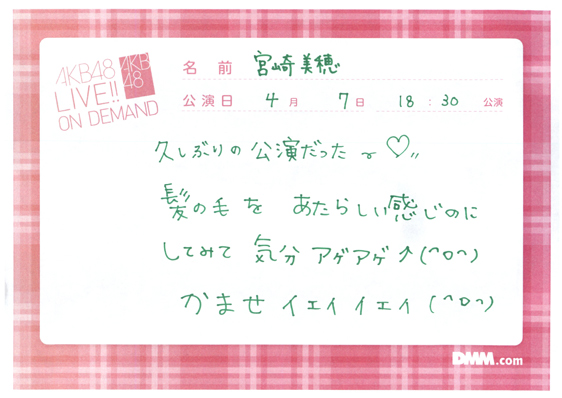 AKB48
LIVE!!
ON DEMAND
AKB
48
名前 宮崎美穂
公演日 4月 7日 18:30 公演
久しぶりの公演だった〜♡〃
髪の毛を あたらしい感じのに
してみて 気分 アゲアゲ↑(^o^)
かませ イエィ イエィ (^o^)
DMM.com